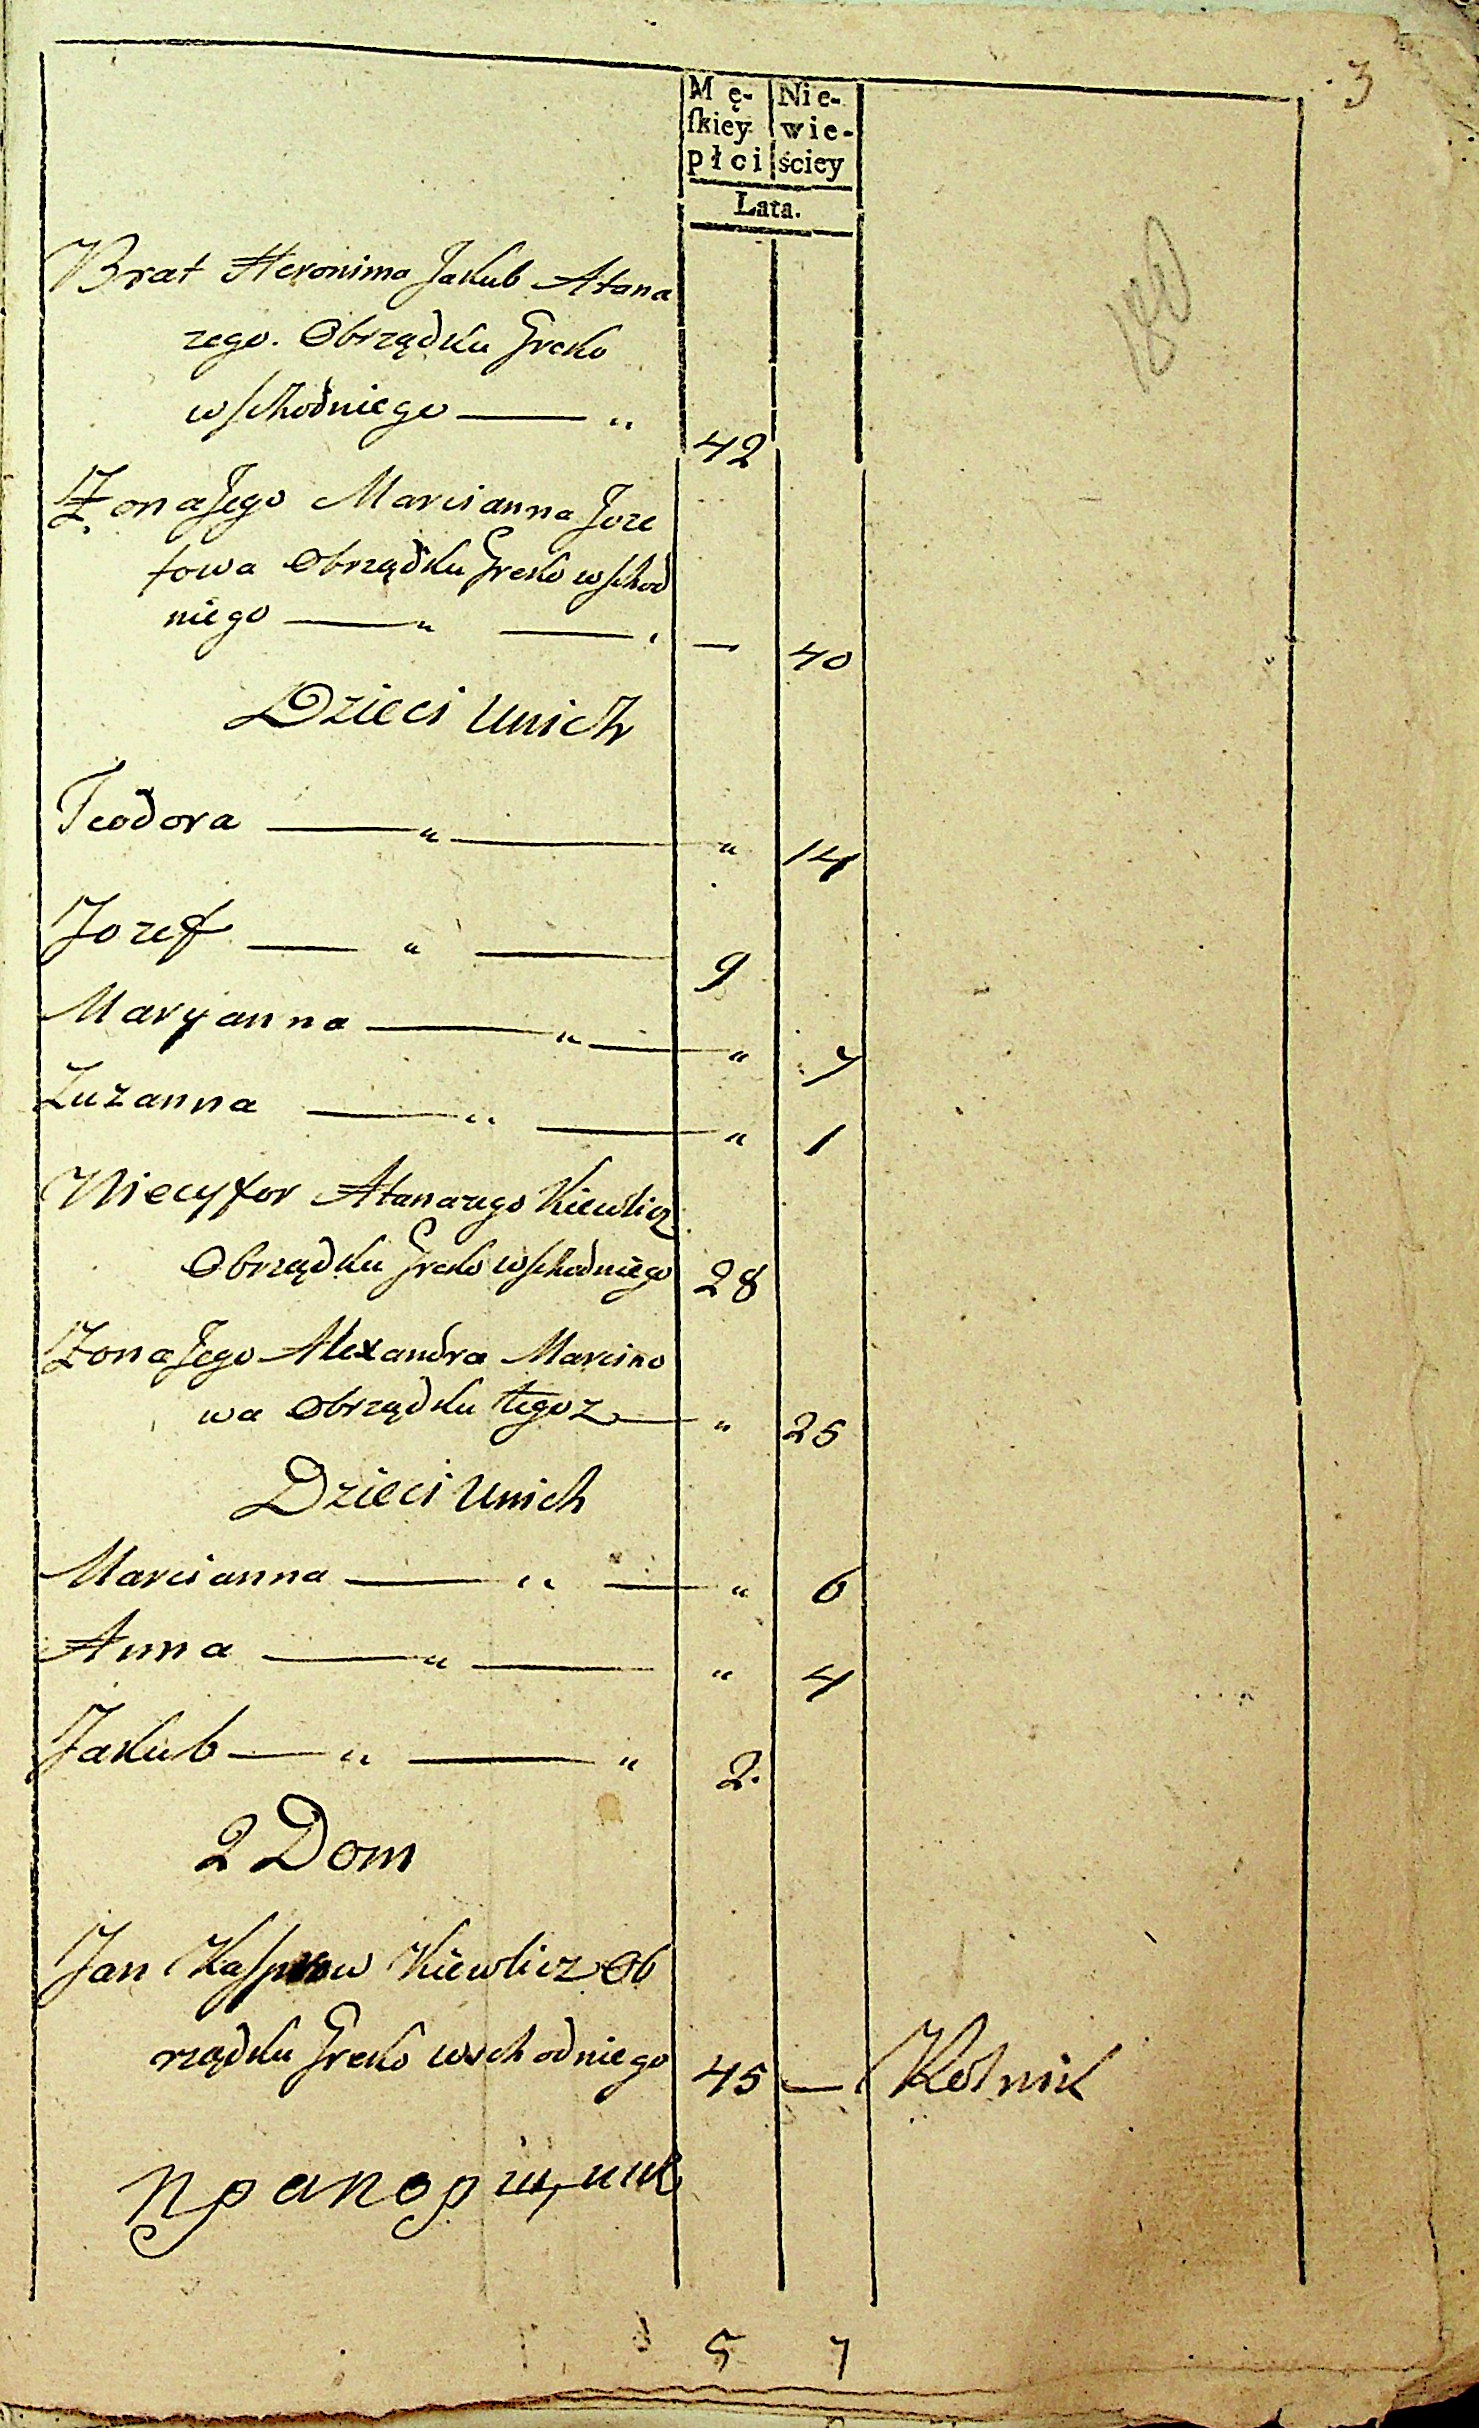 3
Mę- Nie-
ſkiey wie-
płci ściey
Lata.
180
Brat Heronima Jakub Atana
zego. Obrządku Greko
wschodniego — „ 42
Żona Jego Marcianna Joze
fowa Obrządku Greko wschod
niego — „ — — 40
Dzieci unich
Teodora — „ — „ 14
Jozef — „ — 9
Maryanna — „ — „ 7
Zuzanna — „ — „ 1
Niecyfor Atanazego Kiewlicz
Obrządku Greko wschodniego 28
Zona Jego Alexandra Marcino
wa Obrządku tegoz — „ 25
Dzieci unich
Marcianna — „ — „ 6
Anna — „ — „ 4
Jakub — „ — „ 2.
2 Dom
Jan Kasprow Kiewlicz Ob
rządku Greko wschodniego 45 — Rolnik
5 7